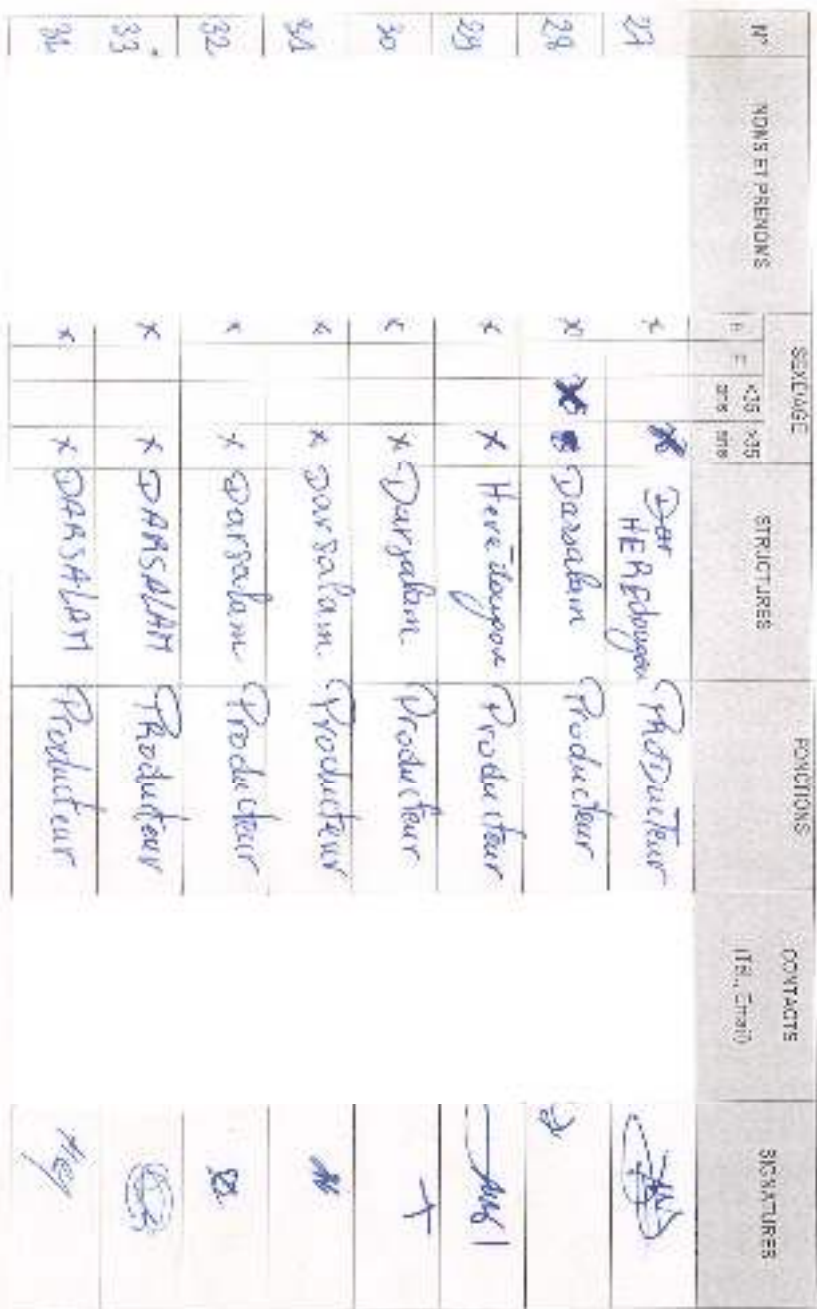 N° NOMS ET PRENOMS SEXE/AGE STRUCTURES FONCTIONS CONTACTS
(Tél., Email) SIGNATURES
H F <35 ans >35 ans
27 x x Dar
HEREdougou PRODucteur
28 x x Darsalam Producteur
29 x x Herédougou Producteur
30 x x Darsalam Producteur
31 x x Darsalam Producteur
32 x x Darsalam Producteur
33 x x DARSALAM PRoducteur
34 x x DARSALAM Producteur